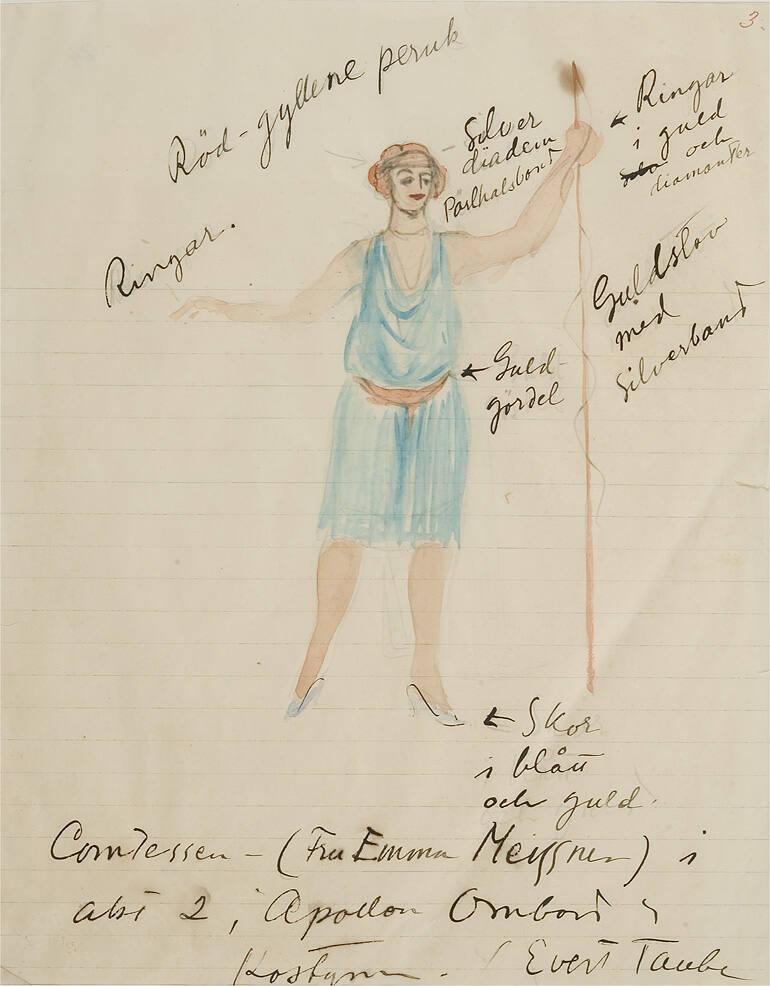 3.
Röd-gyllene peruk
Silver
diadem
Pärlhalsband
Ringar
i guld
och
diamanter
Ringar.
Guldstav
med
Silverband
Guld-
gördel
Skor
i blått
och guld.
Comtessen - (Fru Emma Meissner) i
akt 2, Apollon Ombord
Kostym. / Evert Taube